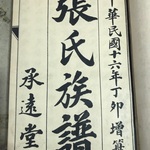 中華民國十六年丁卯增篡
張氏族譜
承遠堂